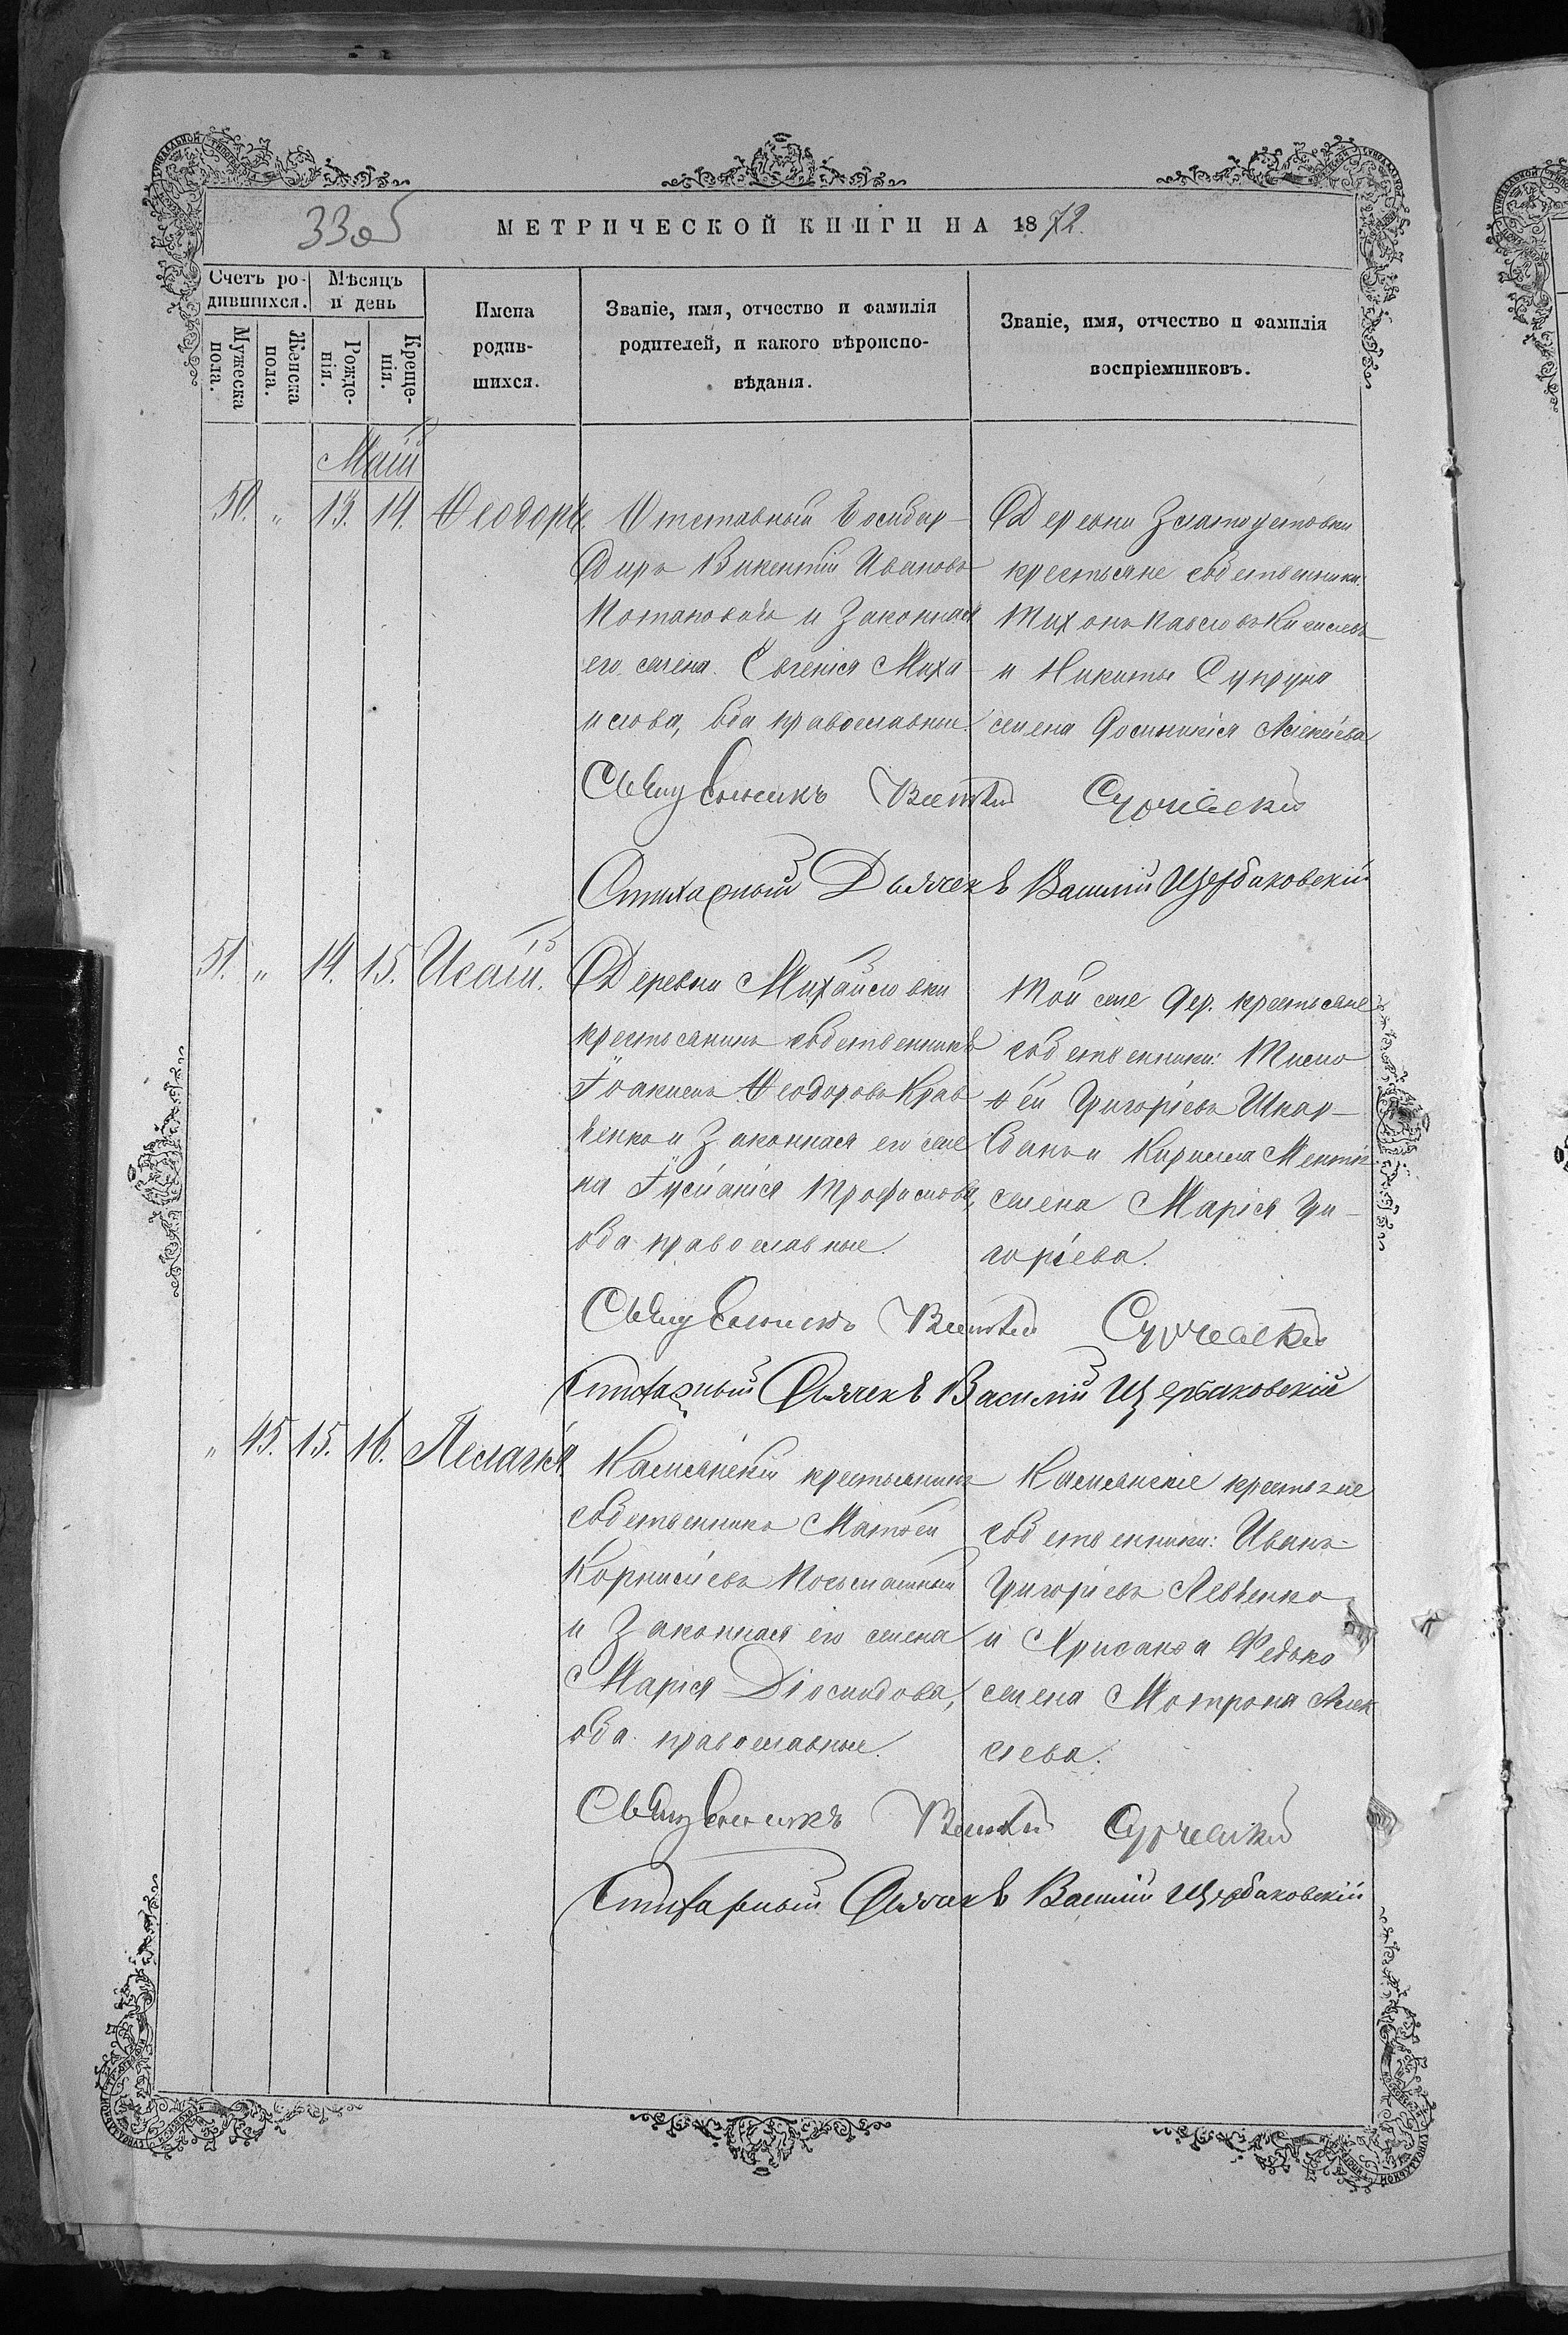 33об
МЕТРИЧЕСКОЙ КНИГИ НА 1872.
Счетъ ро-
дившихся.
Мѣсяцъ
и день
Мужеска
пола.
Женска
пола.
Рожде-
нія.
Креще-
нія.
Имена
родив-
шихся.
Званіе, имя, отчество и фамилія
родителей, и какого вѣроиспо-
вѣданія.
Званіе, имя, отчество и фамилія
воспріемниковъ.
Маій
50. „ 13. 14. Ѳеодоръ.
Отставный Бомбар-
диръ Викентій Ивановъ
и законная
его жена Евгенія Миха-
илова, оба православные.
Деревни Златоустовки
крестьяне собственники:
Тихонъ Павловъ
и Никиты Супруна
жена Алексѣева
Священникъ
Стихарный Дьячекъ Василій Щербаковскій
51. „ 14. 15. Исаій.
Деревни Михайловки
крестьянинъ собственникъ
Іоакимъ Ѳеодоровъ Крав-
ченко и законная его же-
на Іуліанія Трофимова,
оба православные.
Той же дер. крестьяне
собственники: Тимо-
ѳей Григоріевъ Шкар-
банъ и Кирилла
жена Марія Гри-
горіева.
Священникъ
Стихарный Дьячекъ Василій Щербаковскій
„ 45. 15. 16. Пелагія.
крестьянинъ
собственникъ Матѳей
Корниліевъ
и законная его жена
Марія Діомидова,
оба православные.
крестьяне
собственники: Иванъ
Григоріевъ Левченко
и Хрисанѳа Федько
жена Мотрона Алек-
сіева.
Священникъ
Стихарный Дьячекъ Василій Щербаковскій